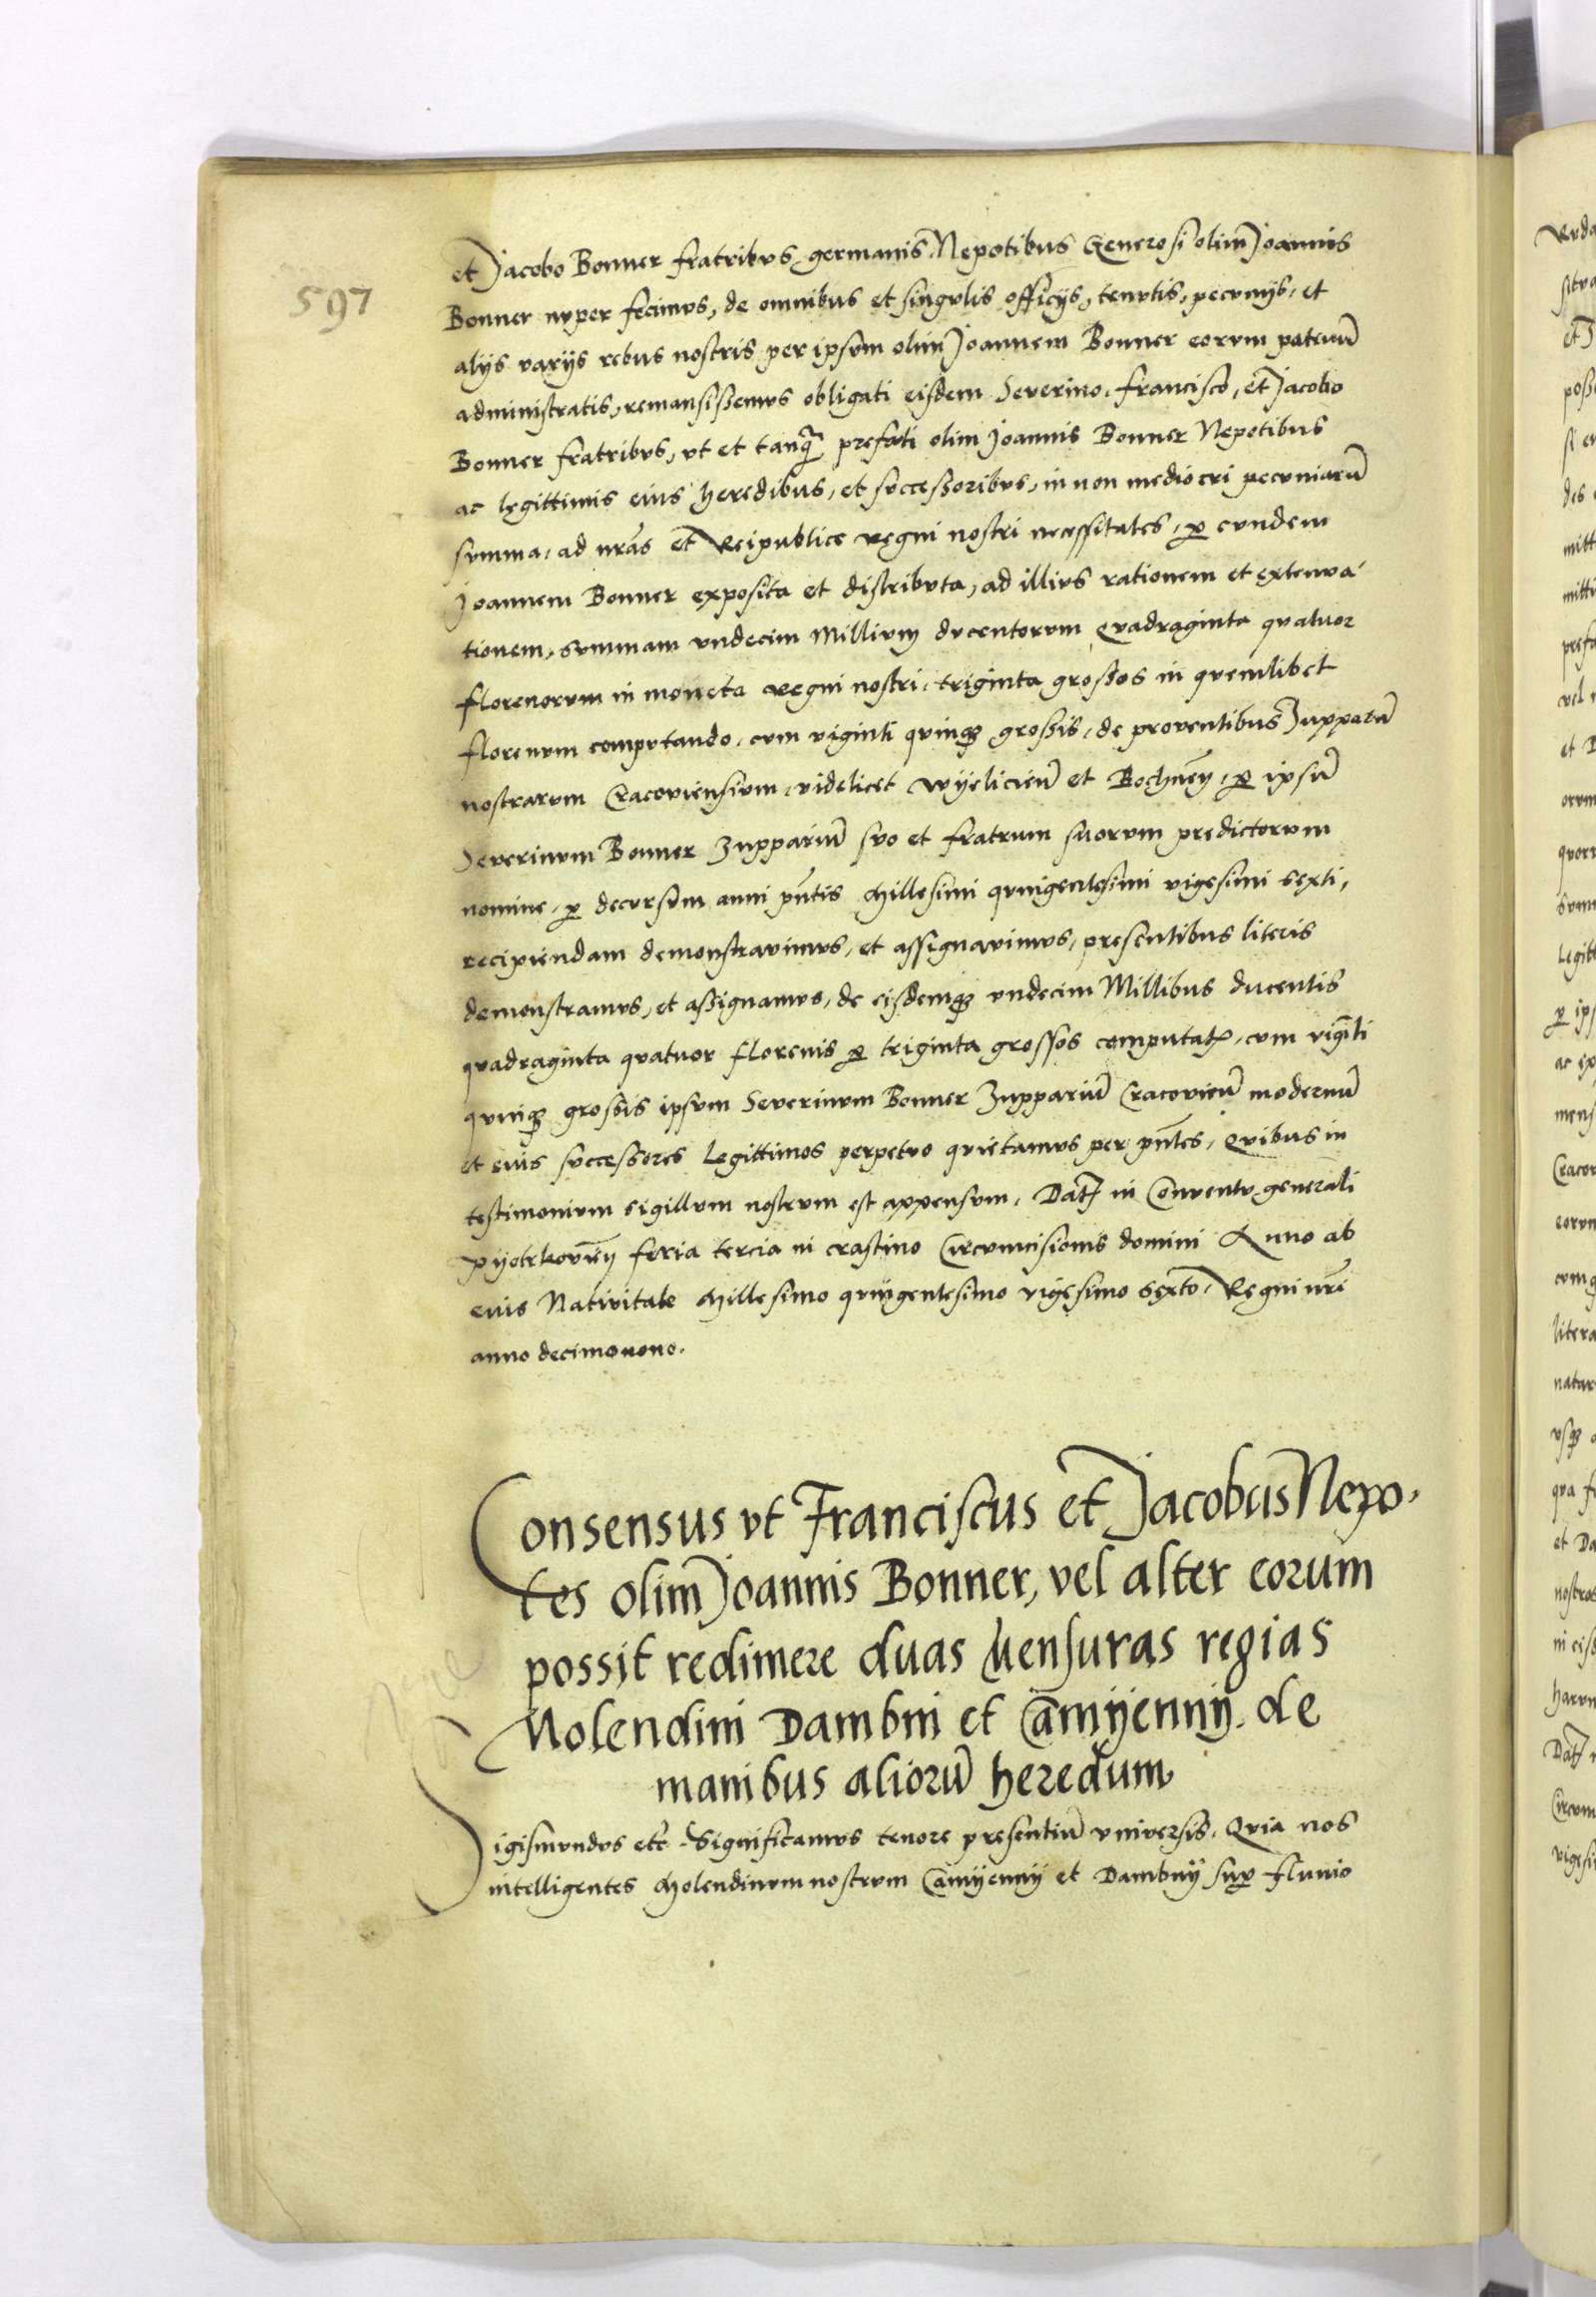 597
et Jacobo Bonner fratribus germanis Nepotibus Generosi olim Joannis
Bonner nvper fecimvs, de omnibus et singvlis officijs, tenvtis, pecvnijs, et
alijs varijs rebus nostris per ipsvm olim Joannem Bonner eorvm patruū
administratis, remansissemvs obligati eisdem Severino, francisco, et Jacobo
Bonner fratribvs, vt et tanq̄ prefati olim Joannis Bonner Nepotibus
ac legittimis eius heredibus, et svccessoribvs, in non mediocri pecvniarū
svmma, ad nrās et Reipublice regni nostri necessitates, p̱ evndem
Joannem Bonner exposita et distribvta, ad illivs rationem et extenva-
tionem, svmmam vndecim Millivm dvcentorvm qvadraginta qvatuor
florenorvm in moneta regni nostri, triginta grossos in qvemlibet
florenvm compvtando, cvm viginti qvinqȝ grossis, de proventibus Zupparū
nostrarvm Cracoviensivm, videlicet wyelicieñ et Bochneñ, p̱ ipsū
Severinvm Bonner Zuppariū svo et fratrum suorvm predictorvm
nomine, p̱ decvrsvm anni pñtis Millesimi qvingentesimi vigesimi sexti,
recipiendam demonstravimvs, et assignavimvs, presentibus literis
demonstramvs, et assignamvs, de eisdemqȝ vndecim Millibus ducentis
qvadraginta qvatuor florenis p̱ triginta grossos computatꝭ, cvm vigīti
qvinqȝ grossis ipsvm Severinvm Bonner Zuppariū Cracovieñ modernū
et eius svccessores legittimos perpetvo qvietamvs per pñtes, qvibus in
testimonivm sigillvm nostrvm est appensvm. Datꝭ in Conventv generali
Pyotrkovieñ feria tercia in crastino Circvmcisionis domini Anno ab
eius Nativitate Millesimo qvingentesimo vigesimo sexto, Regni nrī
anno decimonono.
Consensus vt Franciscus et Jacobus Nepo-
tes olim Joannis Bonner, vel alter eorum
possit redimere duas Mensuras regias
Molendini Dambni et Camyenny de
manibus aliorū heredum
Sigismvndvs etc̄ Significamvs tenore presentiū vniversis. Qvia nos
intelligentes Molendinvm nostrvm Camyenny et Dambny sup̱ fluvio